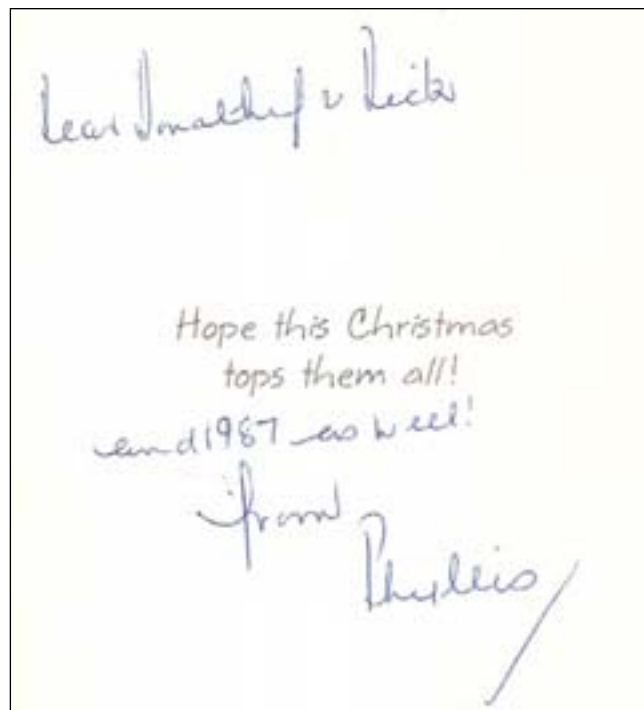 Dear Donald & Dick
Hope this Christmas
tops them all!
and 1987 as well!
from
Phyllis